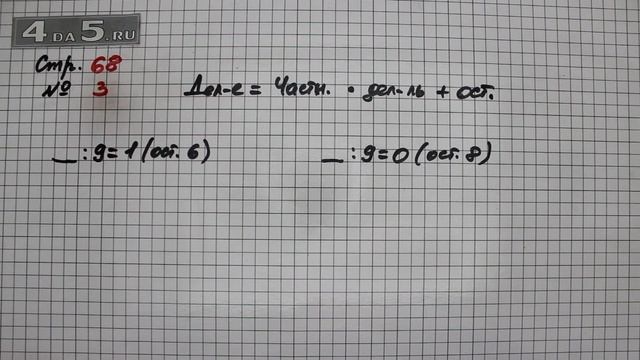 4DA5.RU
Стр. 68
№ 3
Дел-е = Частн. • дел-ль + ост.
__ : 9 = 1 (ост. 6)
__ : 9 = 0 (ост. 8)